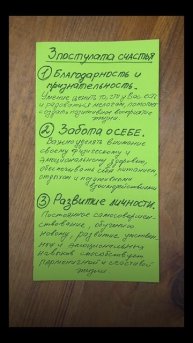 3 постулата счастья
① Благодарность и
признательность.
Умение ценить то, что у Вас есть
и радоваться мелочам, помогает
создать позитивное восприятие
жизни
② Забота о себе.
Важно уделять внимание
своему физическому и
эмоциональному здоровью,
обеспечивать себя питанием,
отдыхом и
③ Развитие личности.
Постоянное самосовершен-
ствование, обучение
новому, развитие умствен-
ных и эмоциональных
навыков способствует
гармоничной и счастливой
жизни